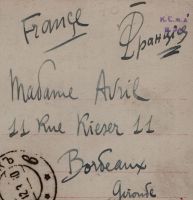 France Франція
Madame Avril
11 Rue Kieser 11
Bordeaux
Gironde